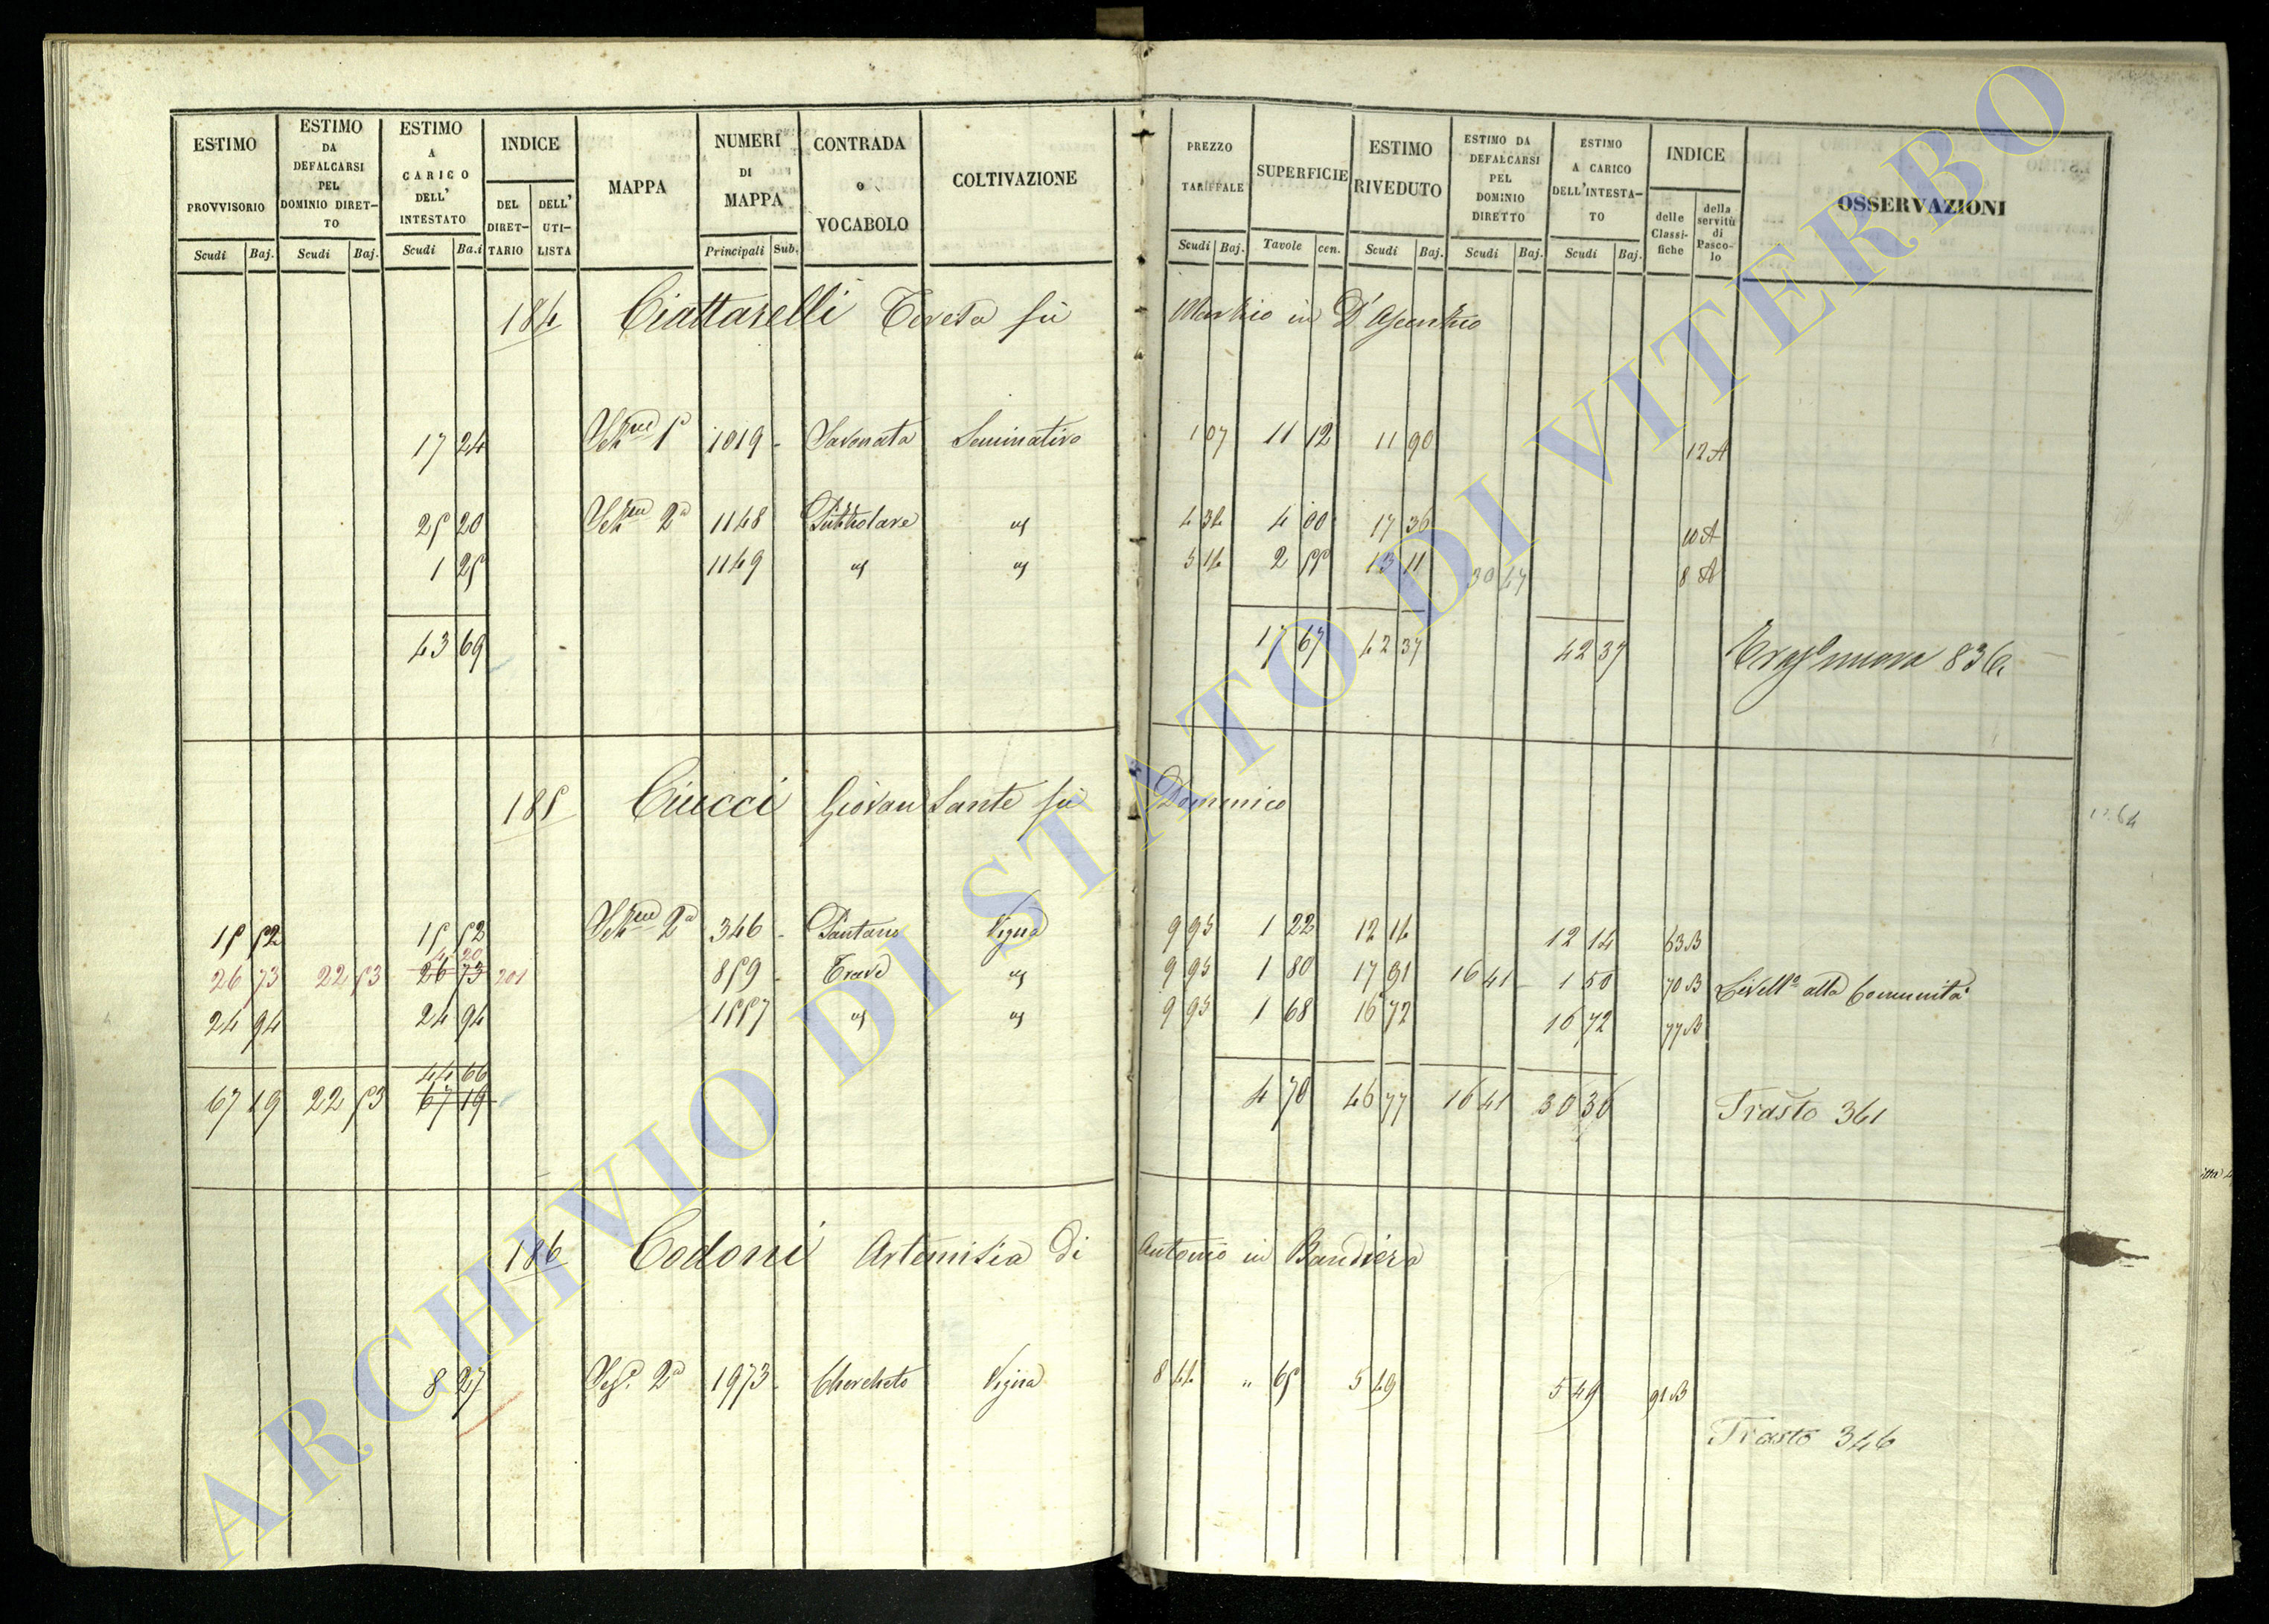 ESTIMO PROVVISORIO Scudi Baj.
ESTIMO DA DEFALCARSI PEL DOMINIO DIRETTO Scudi Baj.
ESTIMO A CARICO DELL' INTESTATO Scudi Ba.i
INDICE DEL DIRETTARIO DELL' UTILISTA
MAPPA
NUMERI DI MAPPA Principali Sub.
CONTRADA o VOCABOLO
COLTIVAZIONE
PREZZO TARIFFALE Scudi Baj.
SUPERFICIE Tavole cen.
ESTIMO RIVEDUTO Scudi Baj.
ESTIMO DA DEFALCARSI PEL DOMINIO DIRETTO Scudi Baj.
ESTIMO A CARICO DELL'INTESTATO Scudi Baj.
INDICE delle Classifiche della servitù di Pascolo
OSSERVAZIONI
184 Ciattarelli Teresa fù
17 24 1019 Seminativo 1 07 11 12 11 90 12 A
25 20 2a 1148 4 34 4 00 17 36 10 A
1 25 1149 " " 5 14 2 55 13 11 30 47 8 A
43 69 17 67 42 37 42 37 nuova 836
185 Ciucci Giovan Sante fù Domenico
15 52 15 52 2a 346 Pantano Vigna 9 95 1 22 12 14 12 14 63 B
4 20
26 73 22 53 26 73 201 859 Trave " 9 95 1 80 17 91 16 41 1 50 70 B Livello alla Comunità
24 94 24 94 1557 " " 9 95 1 68 16 72 16 72 77 B
44 66
67 19 22 53 67 19 4 70 46 77 16 41 30 36 Trasto 361
186 Codoni Artemisia di Antonio in Bandiera
8 27 2a 1973 Chercheto Vigna 8 44 " 65 5 49 5 49 91 B
Trasto 346
ARCHIVIO DI STATO DI VITERBO